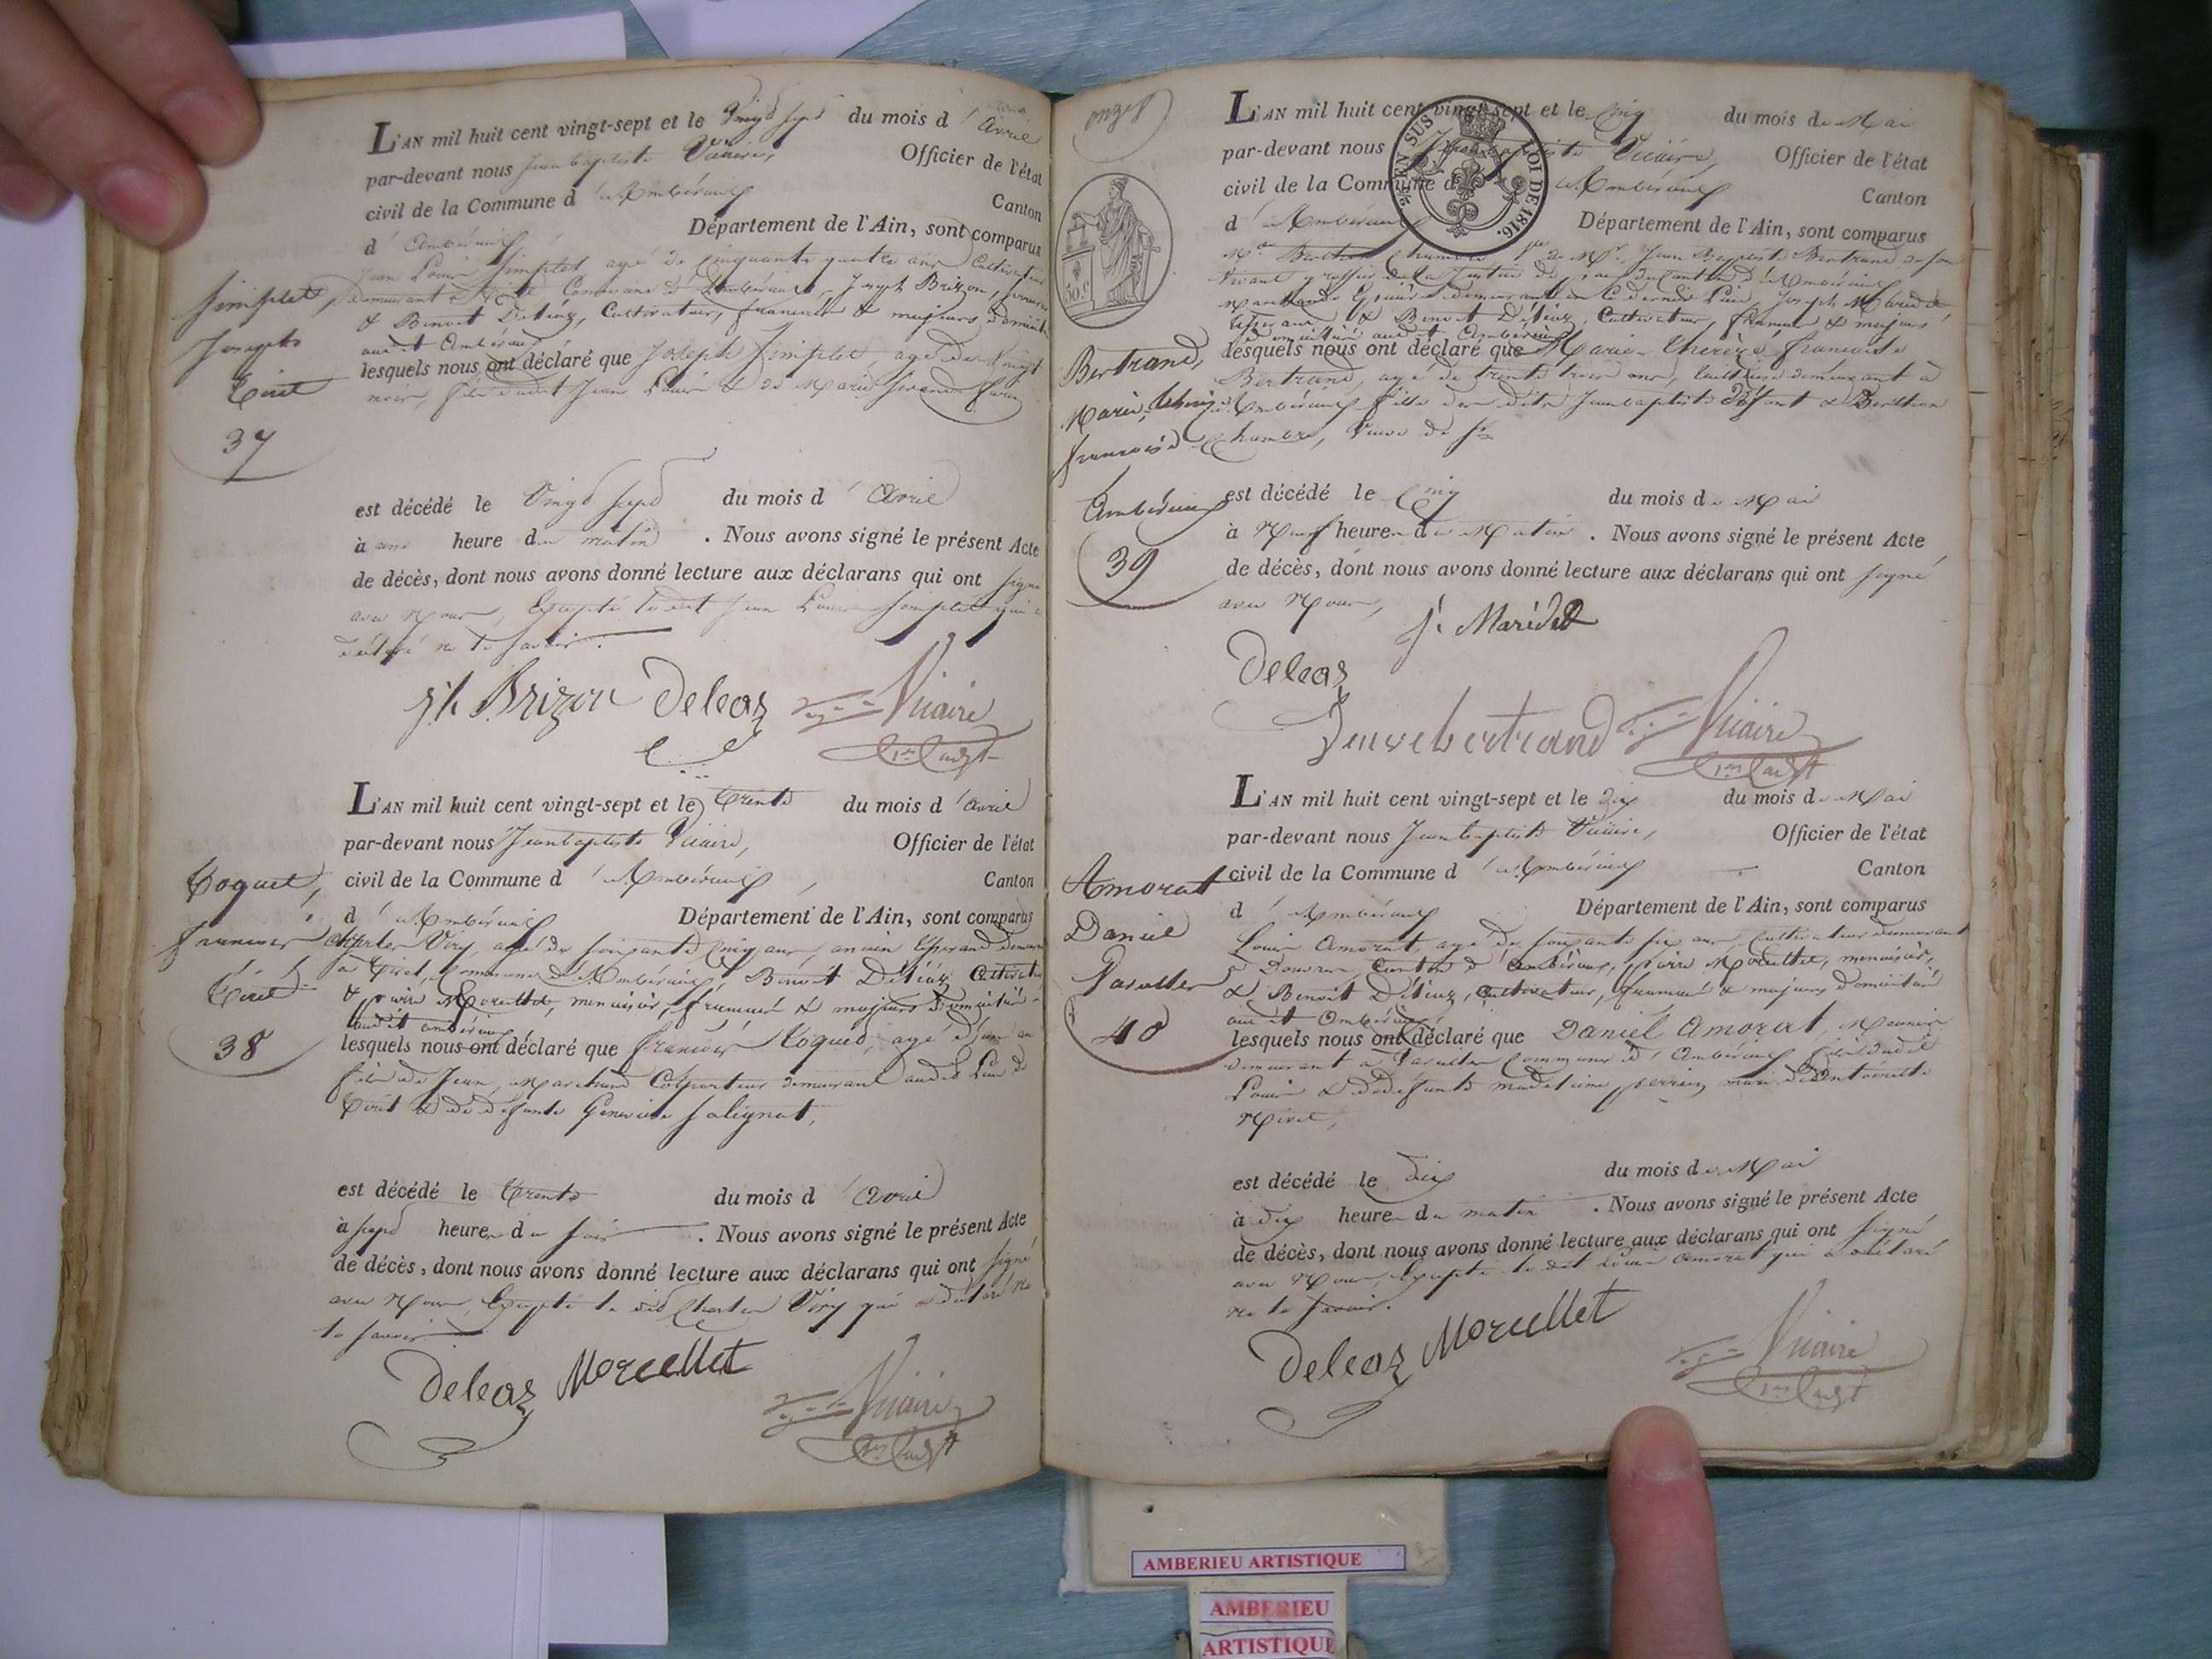 L'AN mil huit cent vingt-sept et le Vingt sept du mois d'Avril
par-devant nous Jean baptiste Vicaire, Officier de l'état
civil de la Commune d'Ambérieux Canton
d'Ambérieux Département de l'Ain, sont comparus
Jean Louis Simplet agé de Cinquante quatre ans Cultivateur
demeurant à Tiret Commune d'Ambérieux, Joseph Brizon,
& Benoit Deléaz, Cultivateur, francais & majeurs domiciliés
audit Ambérieux
lesquels nous ont déclaré que Joseph Simplet, agé de Vingt
mois, fils dudit Jean Louis & de Marie
Simplet,
Joseph
Tiret
37
est décédé le Vingt sept du mois d'Avril
à une heure du matin. Nous avons signé le présent Acte
de décès, dont nous avons donné lecture aux déclarans qui ont signé
avec Nous, Excepté ledit Jean Louis Simplet qui a
déclaré ne le savoir.
jh Brizon Deleaz Vicaire
L'AN mil huit cent vingt-sept et le Trente du mois d'Avril
par-devant nous Jean baptiste Vicaire, Officier de l'état
civil de la Commune d'Ambérieux, Canton
d'Ambérieux Département de l'Ain, sont comparus
Charles Viry, agé de soixante Cinq ans, ancien
à Tiret, Commune d'Ambérieux, Benoit Deléaz Cultivateur
& pierre Morcellet, menuisier, francais & majeurs domiciliés
audit ambérieux
lesquels nous ont déclaré que francois Coquet, agé d'un an
fils de Jean, Marchand Colporteur demeurant audit Lieu de
Tiret & de défunte Genevieve Salignat,
Coquet,
francois
Tiret
38
est décédé le Trente du mois d'Avril
à sept heures du soir. Nous avons signé le présent Acte
de décès, dont nous avons donné lecture aux déclarans qui ont signé
avec Nous, Excepté le dit Charles Viry qui a déclaré ne
le savoir
Deleaz Morcellet Vicaire
onze
EN SUS LOI DE 1816.
50 c
L'AN mil huit cent vingt-sept et le Cinq du mois de Mai
par-devant nous Jean baptiste Vicaire, Officier de l'état
civil de la Commune d'Ambérieux Canton
d'Ambérieux Département de l'Ain, sont comparus
Jean Baptiste Bertrand de son
vivant greffier de la Justice de paix du Canton d'Ambérieux
demeurant en ce dernier Lieu, Joseph
& Benoit Deléaz, Cultivateur, francais & majeurs
domiciliés audit Ambérieux
lesquels nous ont déclaré que Marie Therèze francoise
Bertrand, agé de trente trois ans, demeurant à
Ambérieux fille des dits Jean baptiste Défunt &
Chambre,
Bertrand,
Marie, Therèze
francoise
Ambérieux
39
est décédé le Cinq du mois de Mai
à Neuf heures du Matin. Nous avons signé le présent Acte
de décès, dont nous avons donné lecture aux déclarans qui ont signé
avec Nous,
Deleaz
veuve bertrand Vicaire
L'AN mil huit cent vingt-sept et le dix du mois de Mai
par-devant nous Jean baptiste Vicaire, Officier de l'état
civil de la Commune d'Ambérieux Canton
d'Ambérieux Département de l'Ain, sont comparus
Louis Amorat, agé de soixante six ans, Cultivateur demeurant
à Douvres, Canton d'Ambérieux, pierre Morcellet, menuisier,
& Benoit Deléaz, Cultivateur, francais & majeurs domiciliés
audit Ambérieux
lesquels nous ont déclaré que Daniel Amorat, Meunier
demeurant à Vareilles Commune d'Ambérieux fils dudit
Louis & de défunte madeleine perrin, mari d'Antoinette
Amorat
Daniel
Vareilles
40
est décédé le dix du mois de Mai
à dix heures du matin. Nous avons signé le présent Acte
de décès, dont nous avons donné lecture aux déclarans qui ont signé
avec Nous, Excepté le dit Louis Amorat qui a déclaré
ne le savoir.
Deleaz Morcellet Vicaire
AMBERIEU ARTISTIQUE
AMBERIEU
ARTISTIQUE